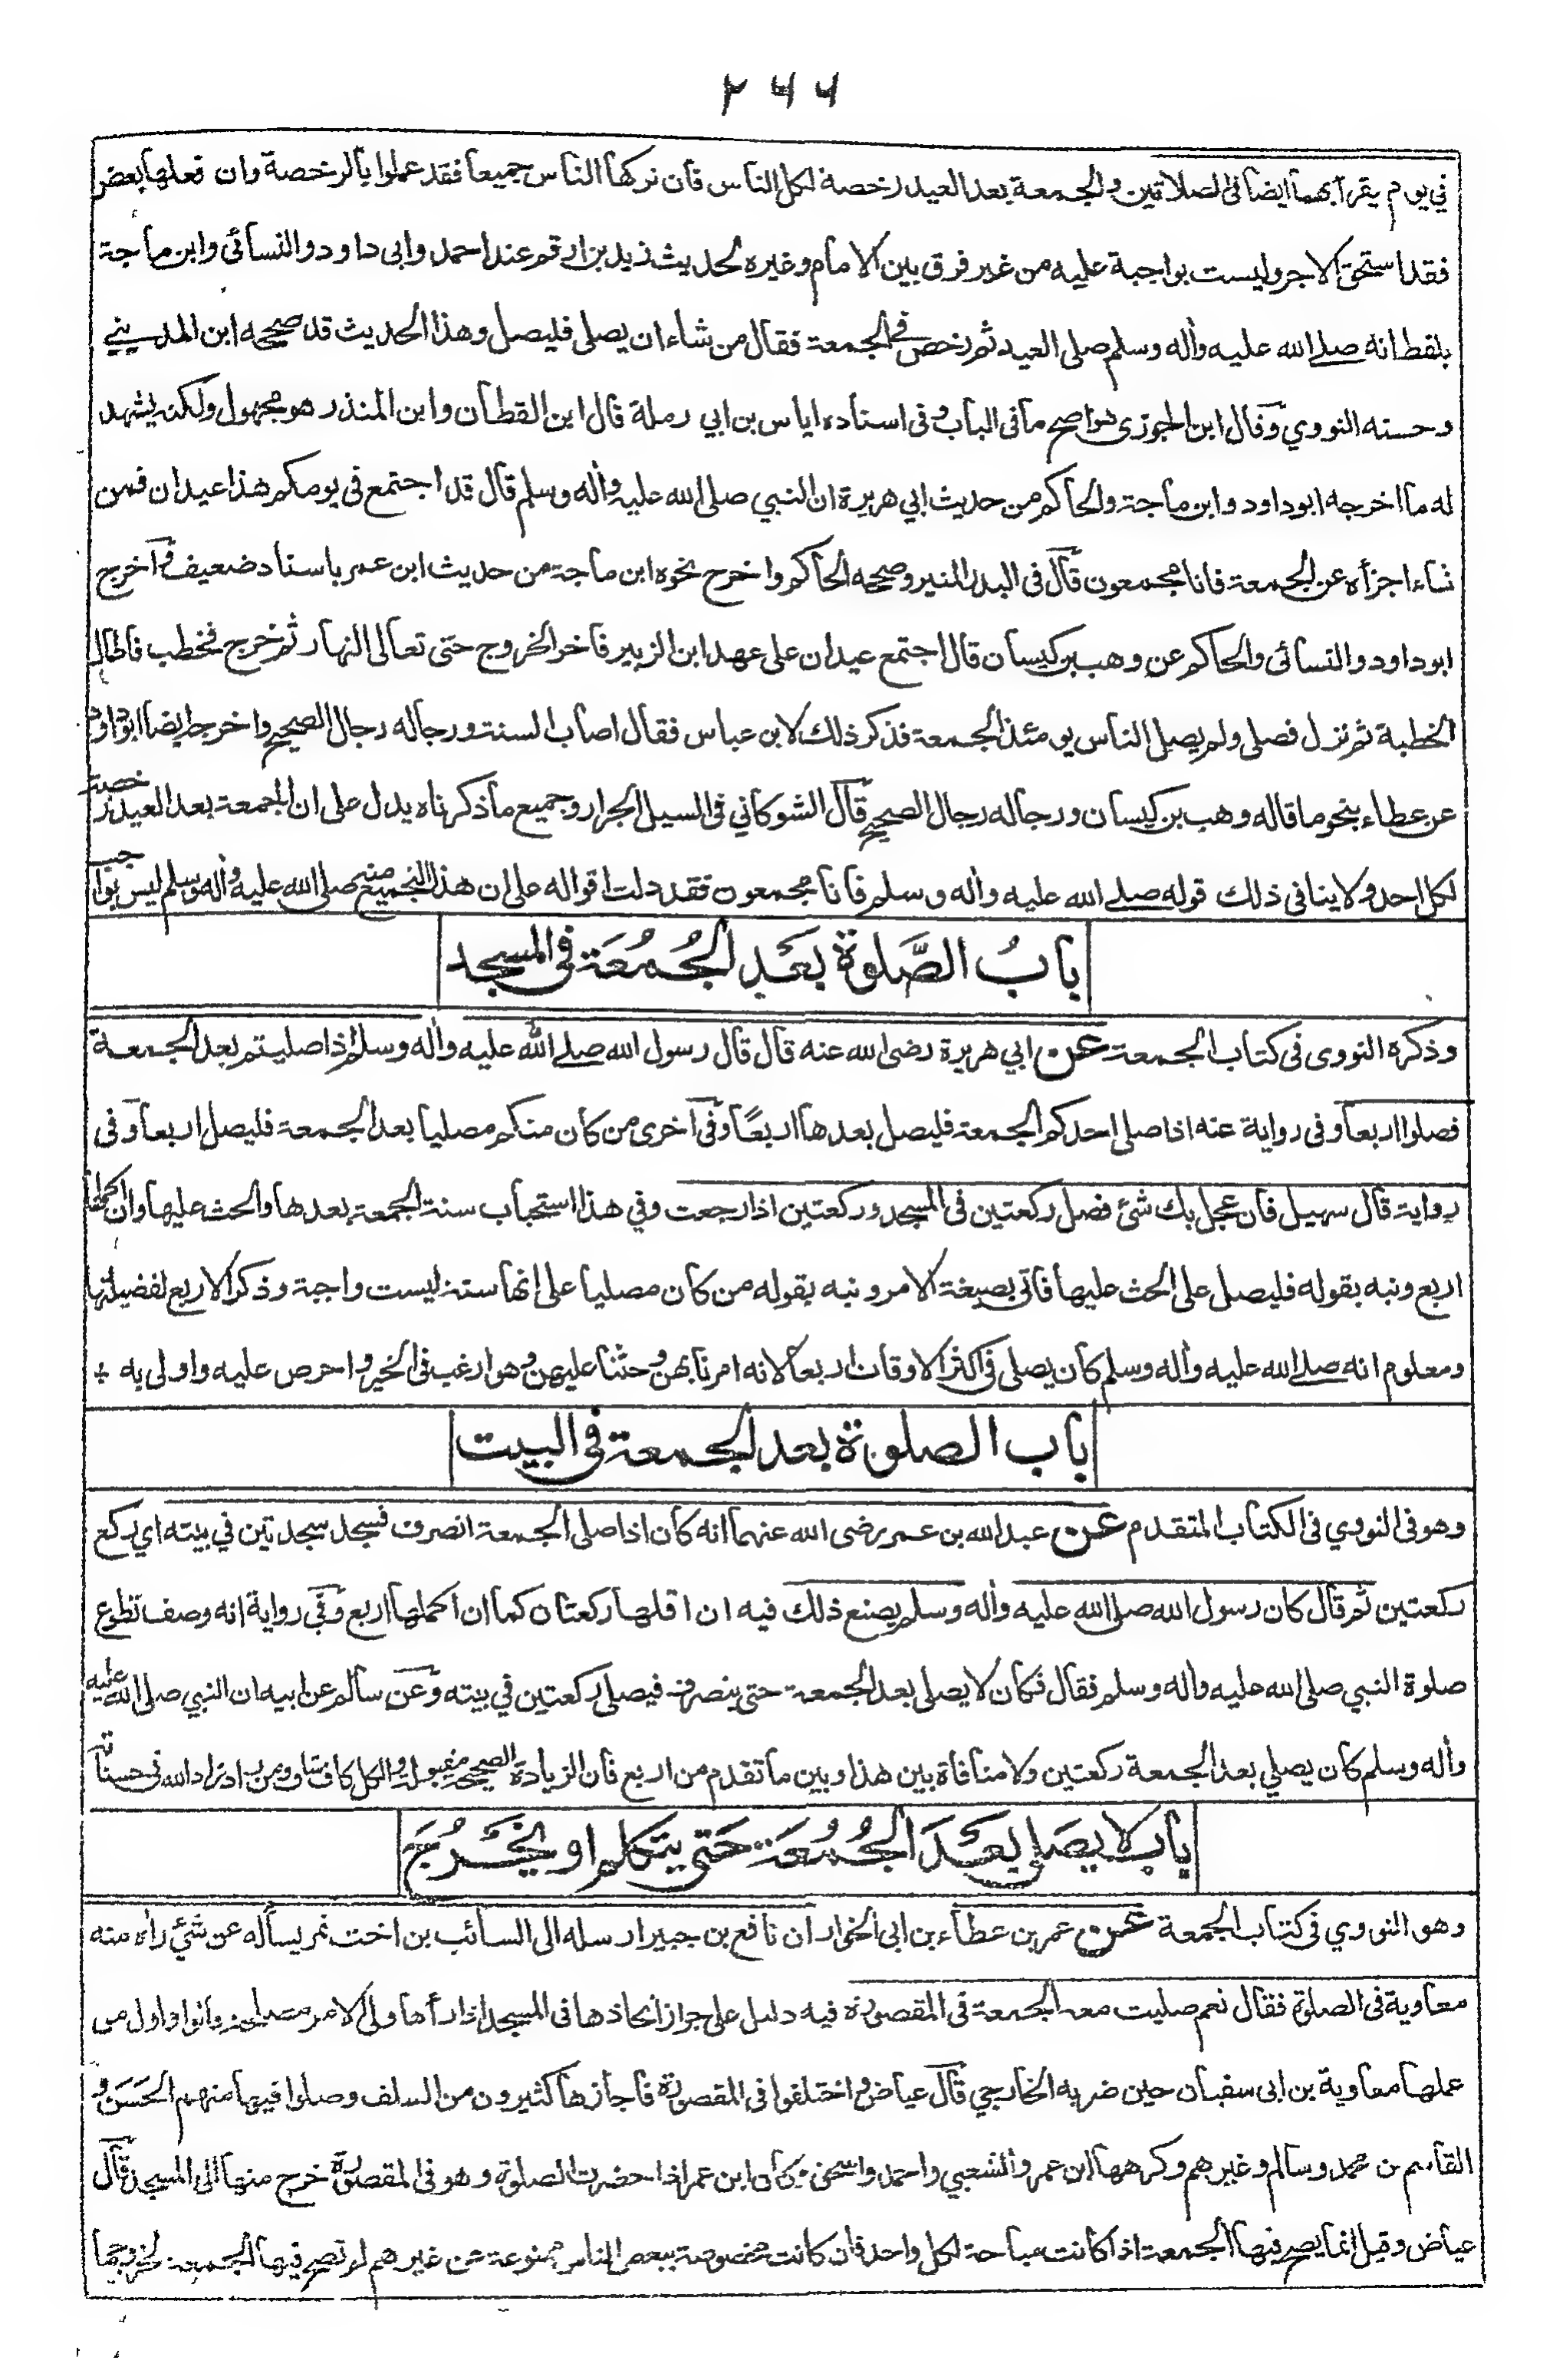 ٢٦٦
في يوم يقرأ بهما ايضا فى الصلاتين والجمعة بعد العيد رخصة لكل الناس فان تركها الناس جميعا فقد عملوا بالرخصة وان فعلها بعض
فقد استحق الاجر وليست بواجبة عليه من غير فرق بين الامام وغيره لحديث زيد بن ارقم عند احمد وابى داود والنسائى وابن ماجة
بلفظ انه صلى الله عليه وأله وسلم صلى العيد ثم رخص فى الجمعة فقال من شاء ان يصلى فليصل وهذا الحديث قد صححه ابن المديني
وحسنه النووي وقال ابن الجوزى هو اصح ما فى الباب وفى اسناده اياس بن ابي رملة قال ابن القطان وابن المنذر هو مجهول ولكنه يشهد
له ما اخرجه ابو داود وابن ماجة والحاكم من حديث ابي هريرة ان النبي صلى الله عليه وأله وسلم قال قد اجتمع فى يومكم هذا عيدان فمن
شاء اجزأه عن الجمعة فانا مجمعون قال فى البدر المنير وصححه الحاكم واخرج نحوه ابن ماجة من حديث ابن عمر باسناد ضعيف وآخرج
ابو داود والنسائى والحاكم عن وهب بن كيسان قال اجتمع عيدان على عهد ابن الزبير فاخر الخروج حتى تعالى النهار ثم خرج فخطب فاطال
الخطبة ثم نزل فصلى ولم يصل الناس يومئذ الجمعة فذكر ذلك لابن عباس فقال اصاب السنة ورجاله رجال الصحيح واخرجه ايضا ابو داود
عن عطاء بنحو ما قاله وهب بن كيسان ورجاله رجال الصحيح قال الشوكاني فى السيل الجرار وجميع ما ذكرناه يدل على ان الجمعة بعد العيد رخصة
لكل احد ولا ينافى ذلك قوله صلى الله عليه وأله وسلم فانا مجمعون فقد دلت اقواله على ان هذا التجميع منه صلى الله عليه وأله وسلم ليس بواجب
بابُ الصَّلوة بَعَد الجُمُعَة فى المسجد
وذكره النووى فى كتاب الجمعة عن ابي هريرة رضى الله عنه قال قال رسول الله صلى الله عليه وأله وسلم اذا صليتم بعد الجمعة
فصلوا اربعا وفى رواية عنه اذا صلى احدكم الجمعة فليصل بعدها اربعًا وفى آخرى من كان منكم مصليا بعد الجمعة فليصل اربعا وفى
رواية قال سهيل فان عجل بك شئ فصل ركعتين فى المسجد وركعتين اذا رجعت وفي هذا استحباب سنة الجمعة بعدها والحث عليها وان اكملها
اربع ونبه بقوله فليصل على الحث عليها فاتى بصيغة الامر ونبه بقوله من كان مصليا على انها سنة ليست واجبة وذكر الاربع لفضيلتها
ومعلوم انه صلى الله عليه وأله وسلم كان يصلى فى اكثر الاوقات اربعا لانه امرنا بهن وحثنا عليهن وهو ارغب فى الخير واحرص عليه واولى به +
باب الصلوة بعد الجمعة فى البيت
وهو فى النووي فى الكتاب المتقدم عن عبد الله بن عمر رضى الله عنهما انه كان اذا صلى الجمعة انصرف فسجد سجدتين في بيته اي ركع
ركعتين ثم قال كان رسول الله صلى الله عليه وأله وسلم يصنع ذلك فيه ان اقلها ركعتان كما ان اكملها اربع وفي رواية انه وصف تطوع
صلوة النبي صلى الله عليه وأله وسلم فقال فكان لا يصلى بعد الجمعة حتى ينصرف فيصلى ركعتين في بيته وعن سالم عن ابيه ان النبي صلى الله عليه
وأله وسلم كان يصلي بعد الجمعة ركعتين ولا منافاة بين هذا وبين ما تقدم من اربع فان الزيادة الصحيحة مقبولة والكل كاف شاف ومن زاد زاد الله فى حسناته
باب لا يصَلى بعَدَ الجُمُعَة حَتى يتكلم او يخَرُجَ
وهو النووي فى كتاب الجمعة عن عمر بن عطاء بن ابى الخوار ان نافع بن جبير ارسله الى السائب بن اخت نمر يسأله عن شئ رأه منه
معاوية فى الصلوة فقال نعم صليت معه الجمعة فى المقصورة فيه دليل على جواز اتخاذها فى المسجد اذا رأها ولى الامر مصلحة وقالوا واول من
عملها معاوية بن ابى سفيان حين ضربه الخارجي قال عياض واختلفوا فى المقصورة فاجازها كثيرون من السلف وصلوا فيها منهم الحَسَن و
القاسم بن محمد وسالم وغيرهم وكرهها ابن عمر والشعبي واحمد واسحق وكان ابن عمر اذا حضرت الصلوة وهو فى المقصورة خرج منها الى المسجد قال
عياض وقيل انما يصح فيها الجمعة اذا كانت مباحة لكل واحد فان كانت مخصوصة ببعض الناس ممنوعة عن غيرهم لم تصح فيها الجمعة لخروجها